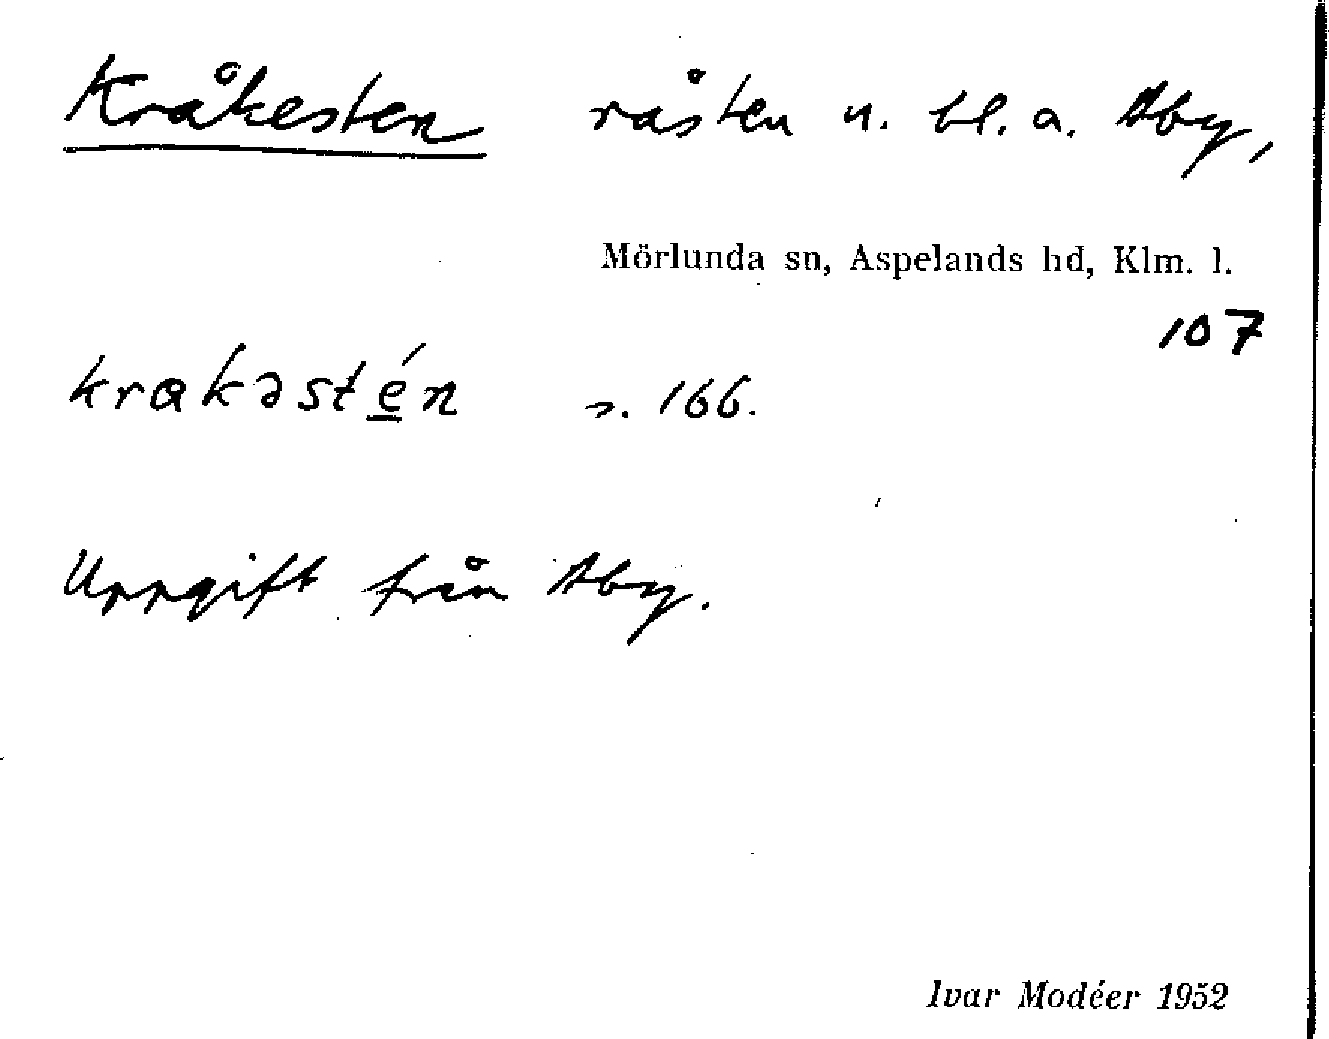 Kråkesten råsten u. bl. a. Åby,
Mörlunda sn, Aspelands hd, Klm. l.
107
krakəstén n. 166.
Uppgift från Åby.
Ivar Modéer 1952